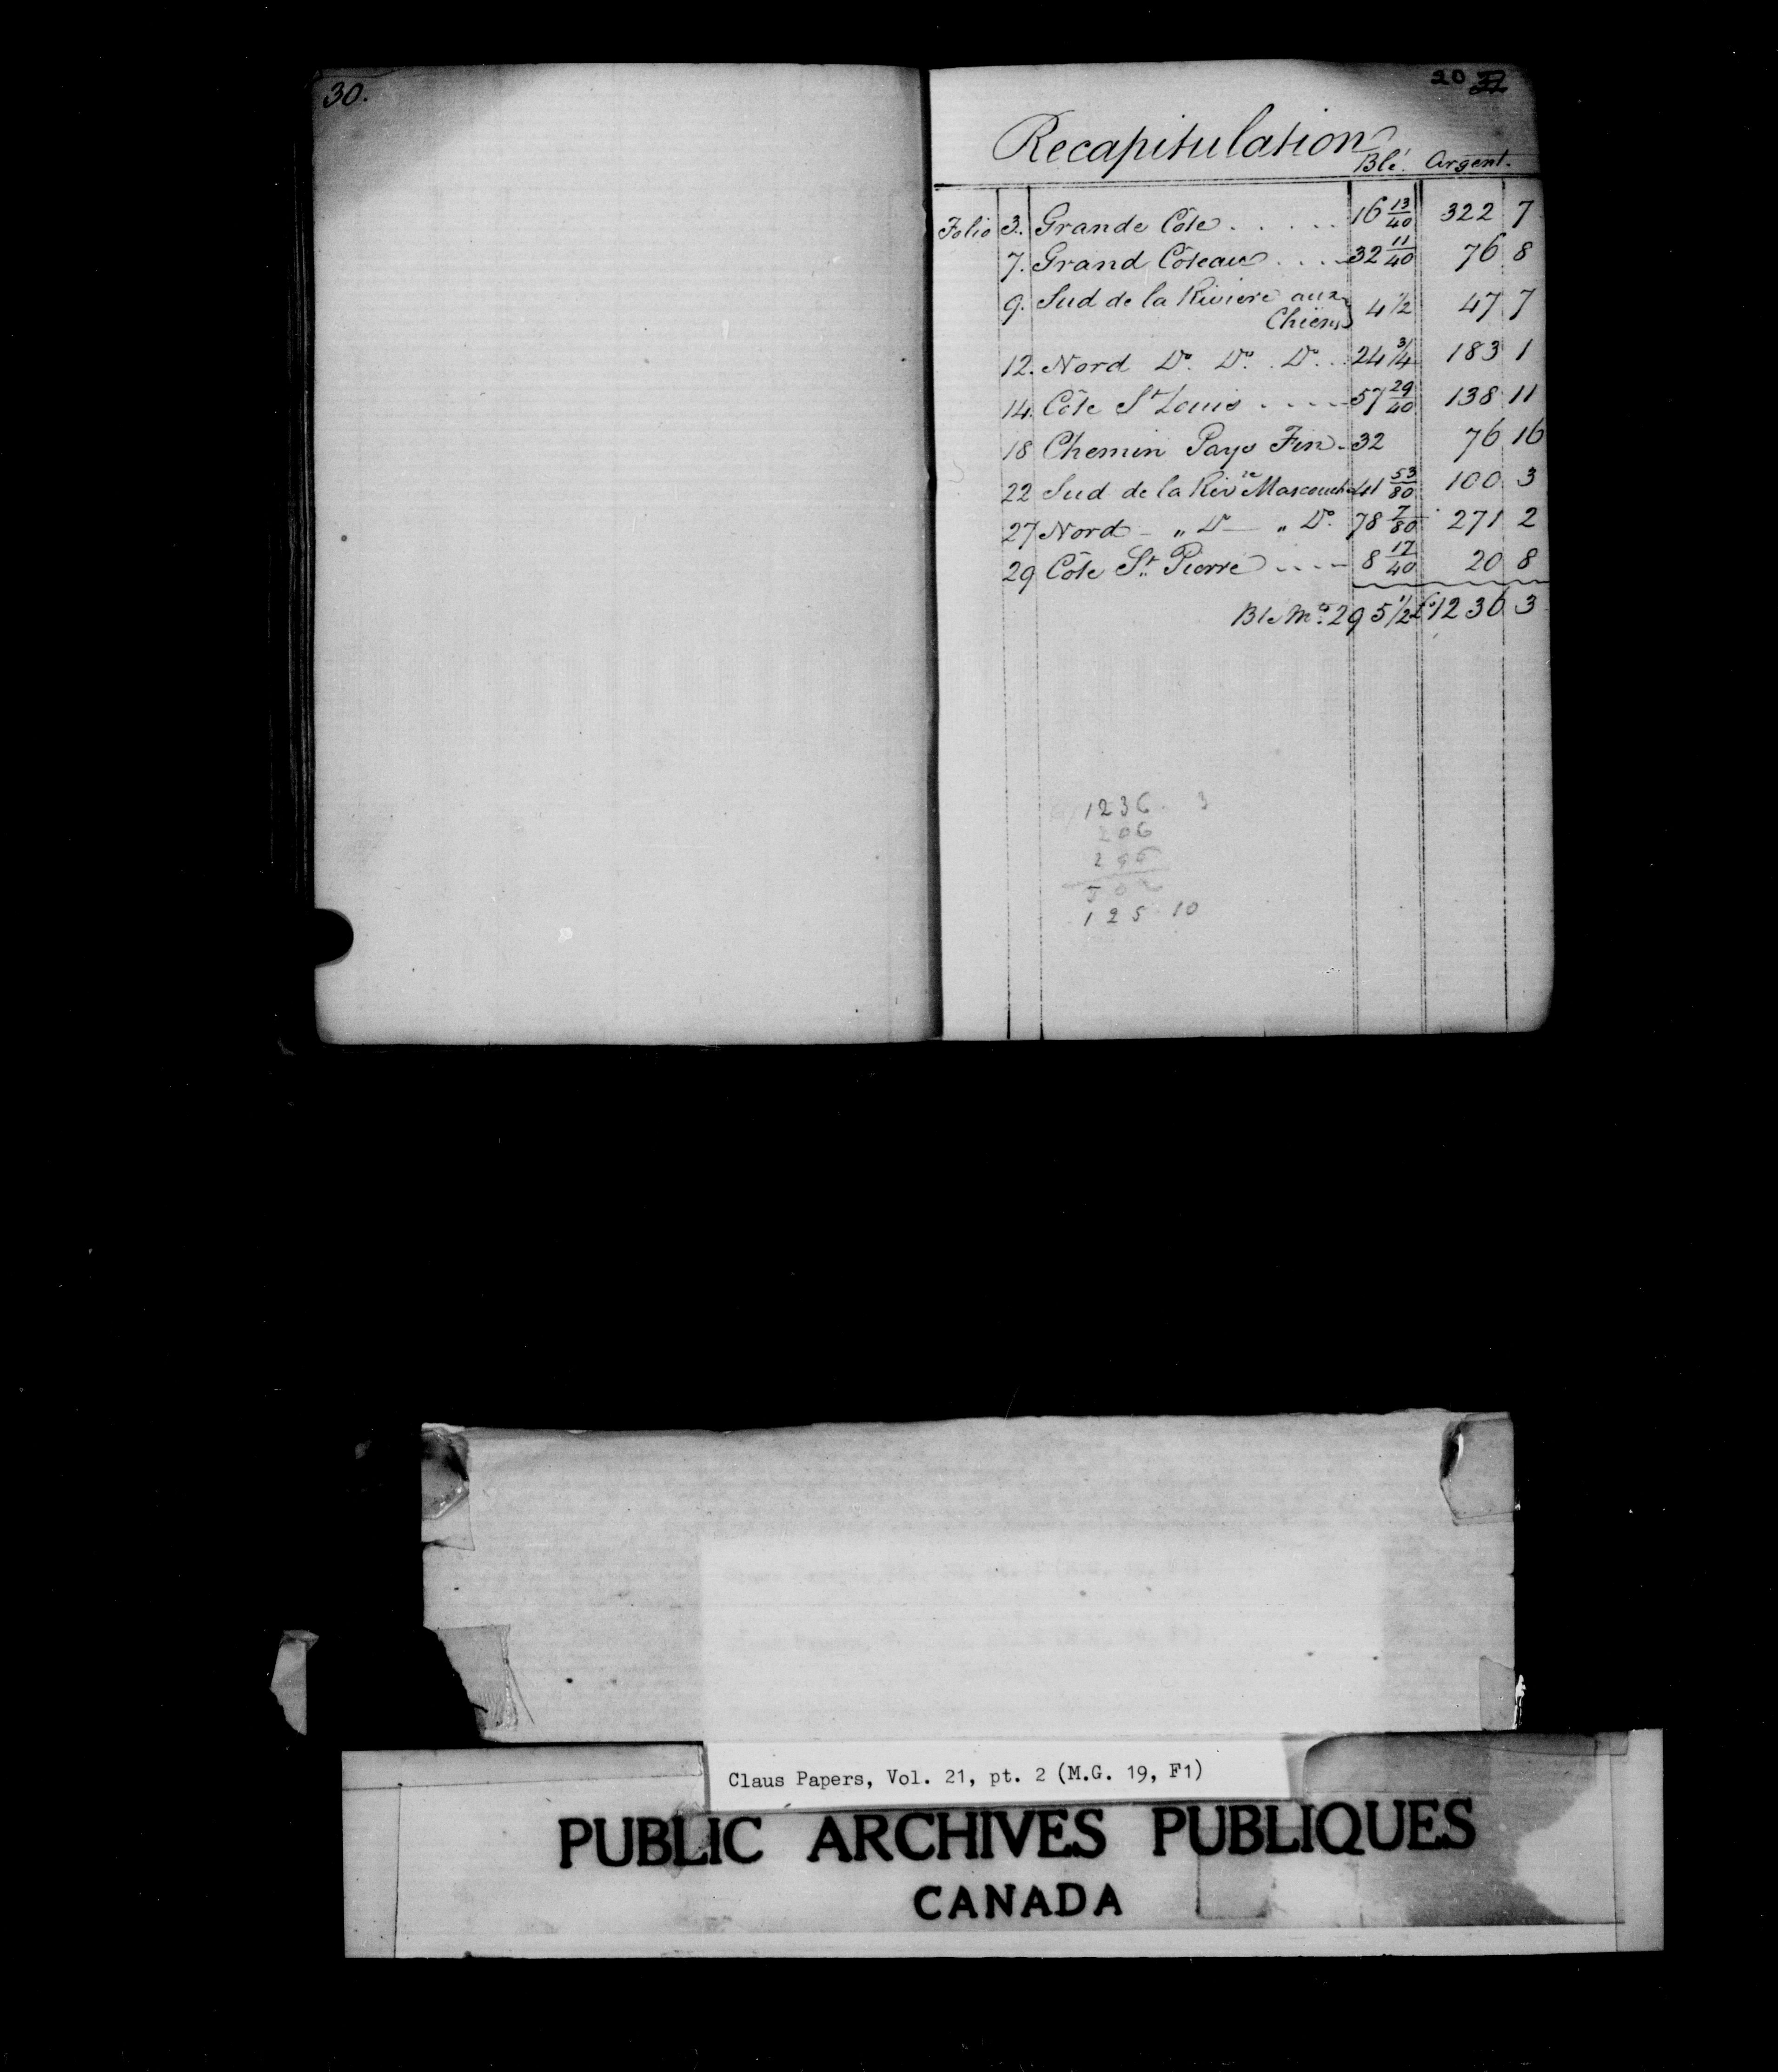 30.
20 32
Recapitulation
Blé. Argent.
Folio 3. Grande Côte . . . . . 16 13/40 322 7
7. Grand Côteau . . . . 32 11/40 76 8
9. Sud de la Riviere aux
Chiens } 4 1/2 47 7
12. Nord Do. Do. Do. . . 24 3/4 183 1
14. Côte St Louis . . . . 57 29/40 138 11
18 Chemin Pays Fin - 32 76 16
22 Sud de la Rivre Mascouche 41 53/80 100 3
27 Nord - " Do — " Do. 78 7/80 271 2
29 Côte St. Pierre . . . . 8 17/40 20 8
Ble Mts. 295 1/2 £ 1236 3
1236. 3
206
295
502
125 10
Claus Papers, Vol. 21, pt. 2 (M.G. 19, F1)
PUBLIC ARCHIVES PUBLIQUES
CANADA